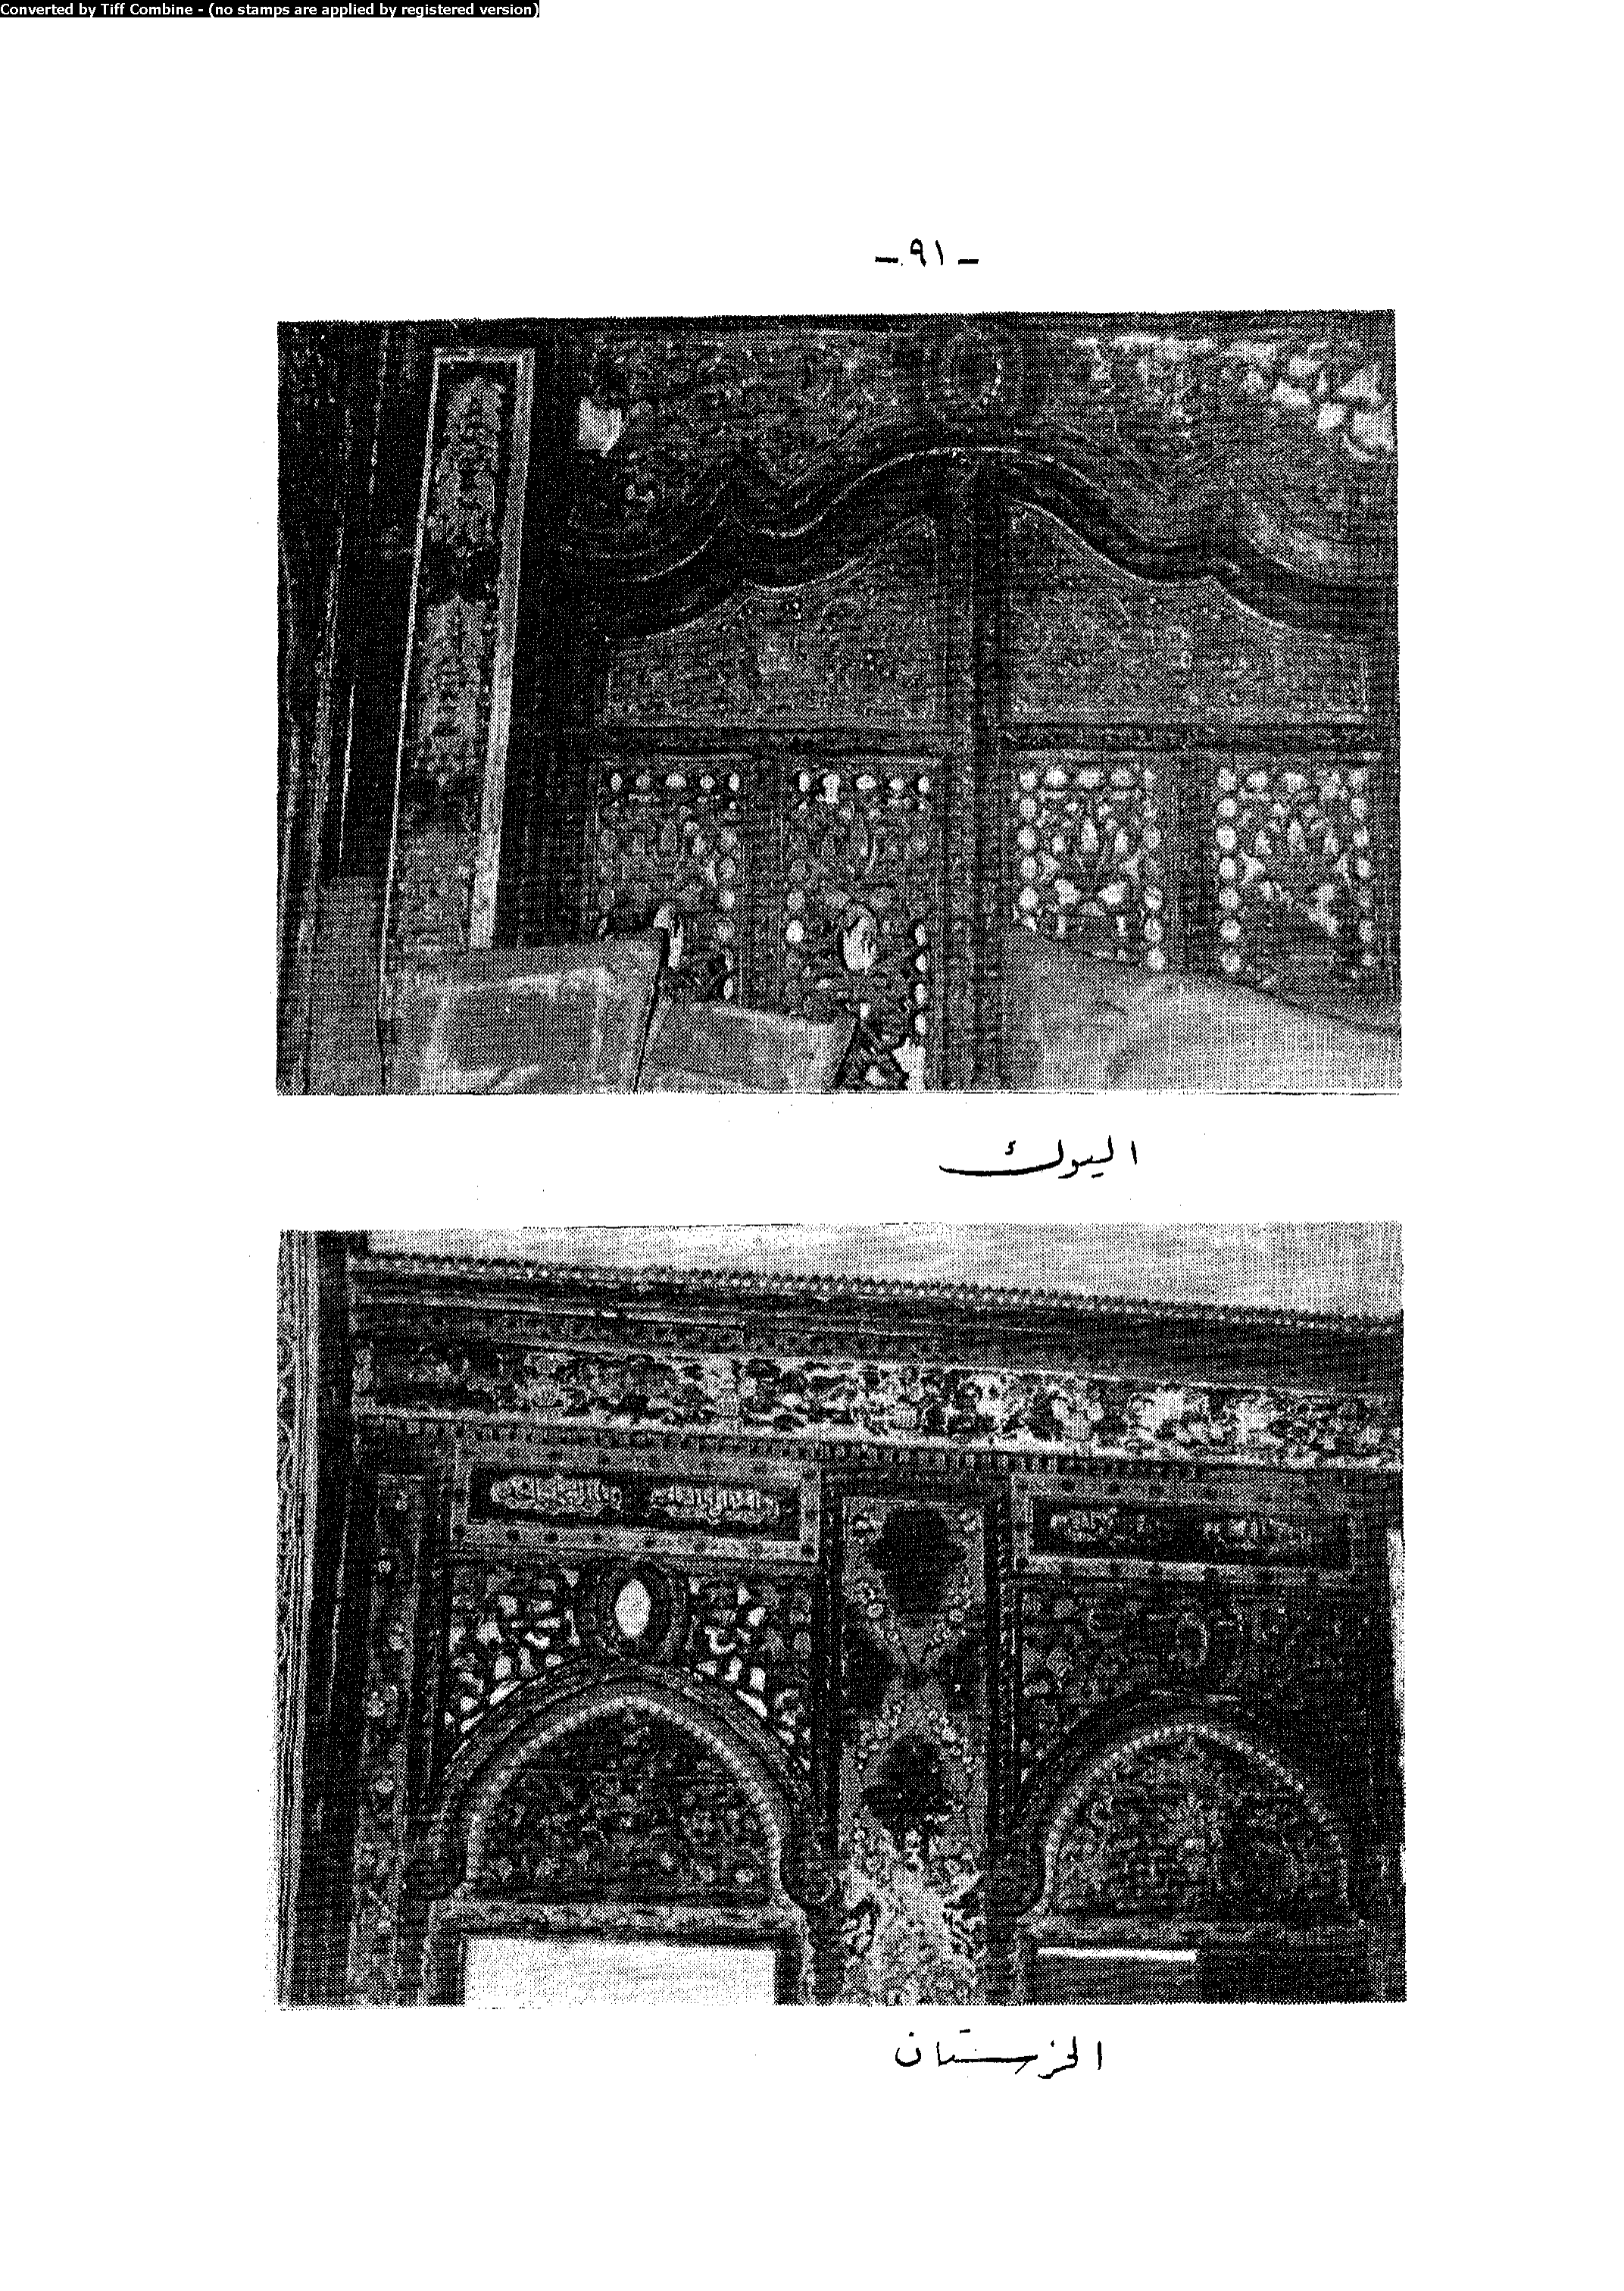 Converted by Tiff Combine - (no stamps are applied by registered version)
- ٩١ -
اليوك
الخرستان